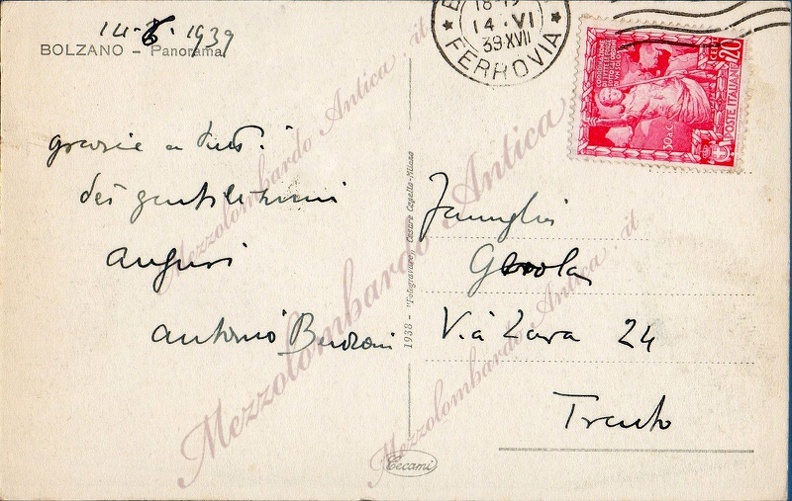 14-6-1939
BOLZANO - Panorama
18-19
14·VI
39·XVII
FERROVIA
20
CENT
POSTE ITALIANE
grazie a tutti
dei gentilissimi
auguri
Antonio
Famiglia
Via Zara 24
Trento
1938 - "Fotogravure,, Cesare Capello-Milano
Cecami
Mezzolombardo Antica.it
Mezzolombardo Antica
Mezzolombardo Antica.it